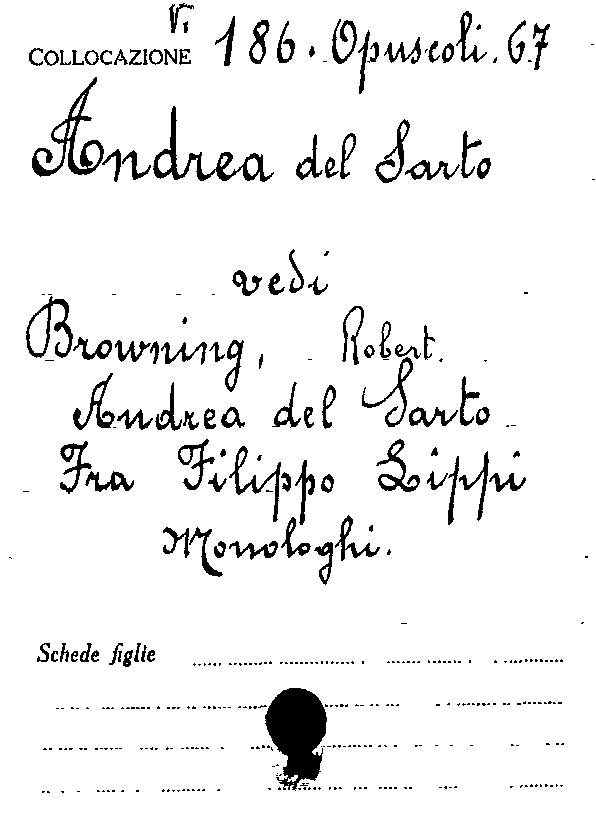 Vi
COLLOCAZIONE 186. Opuscoli. 67
Andrea del Sarto
vedi
Browning, Robert.
Andrea del Sarto
Fra Filippo Lippi
Monologhi.
Schede figlie